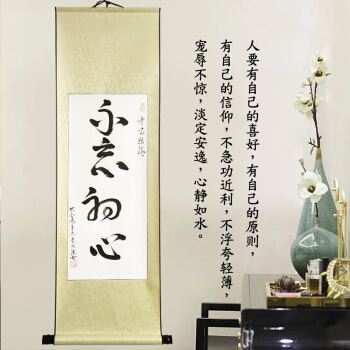 不忘初心
人要有自己的喜好，有自己的原则，
有自己的信仰，不急功近利，不浮夸轻薄，
宠辱不惊，淡定安逸，心静如水。